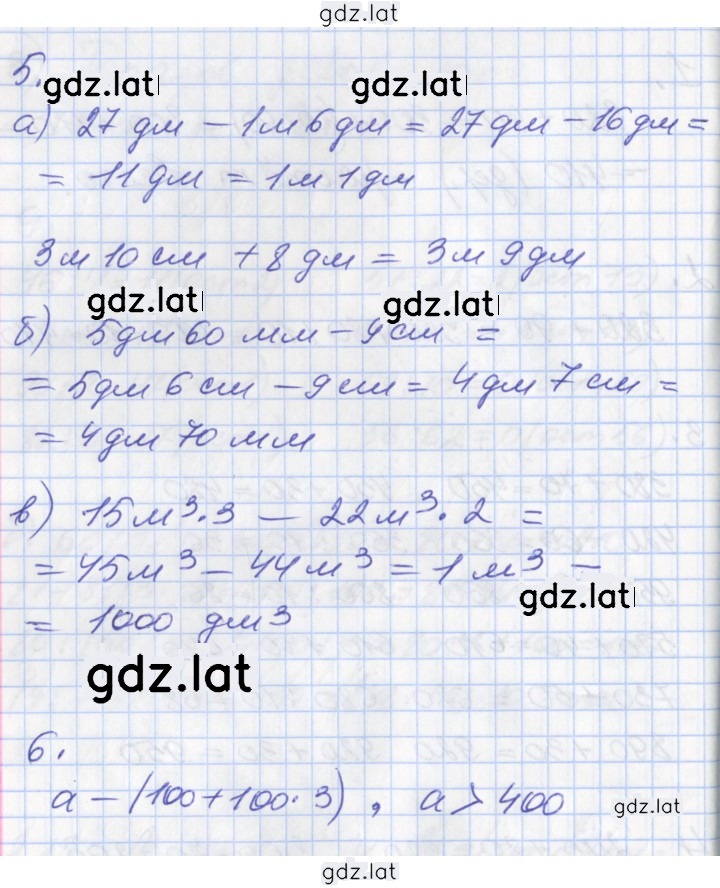 gdz.lat
5.
gdz.lat gdz.lat
а) 27 дм – 1 м 6 дм = 27 дм – 16 дм =
= 11 дм = 1 м 1 дм
3 м 10 см + 8 дм = 3 м 9 дм
gdz.lat gdz.lat
б) 5 дм 60 мм – 9 см =
= 5 дм 6 см – 9 см = 4 дм 7 см =
= 4 дм 70 мм
в) 15 м³·3 – 22 м³·2 =
= 45 м³ – 44 м³ = 1 м³ –
gdz.lat
= 1000 дм³
gdz.lat
6.
а – (100 + 100·3), а > 400
gdz.lat
gdz.lat